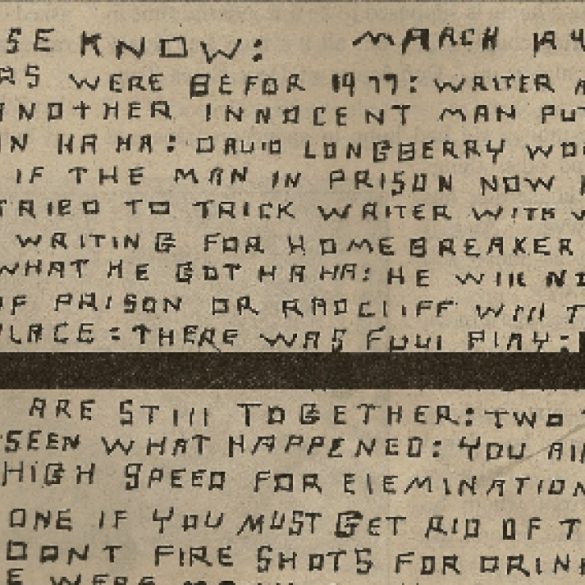 SE KNOW: MARCH 194
AS WERE BEFOR 1977: WRITER A
ANOTHER INNOCENT MAN PU
N HA HA: DAVID LONGBERRY WO
IF THE MAN IN PRISON NOW
TRIED TO TRICK WRITER WITH
WRITING FOR HOMEBREAKER
WHAT HE GOT HA HA: HE WIll N
OF PRISON OR RADClIFF WIll T
LACE: THERE WAS FOUl PlAY:
ARE STIll TOGETHER: TWO
SEEN WHAT HAPPENED: YOU AI
HIGH SPEED FOR ElEMINATION
ONE IF YOU MUST GET RID OF T
DONT FIRE SHOTS FOR DRIN
E WERE